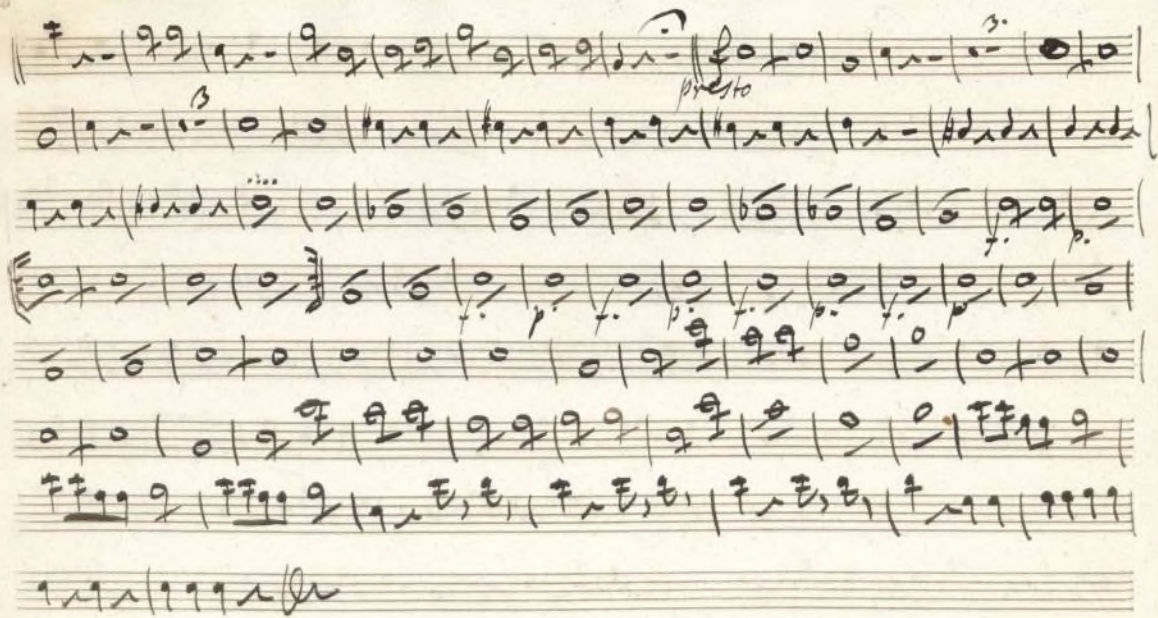 3.
presto
3
f. p.
f. p. f. p. f. p. f. p